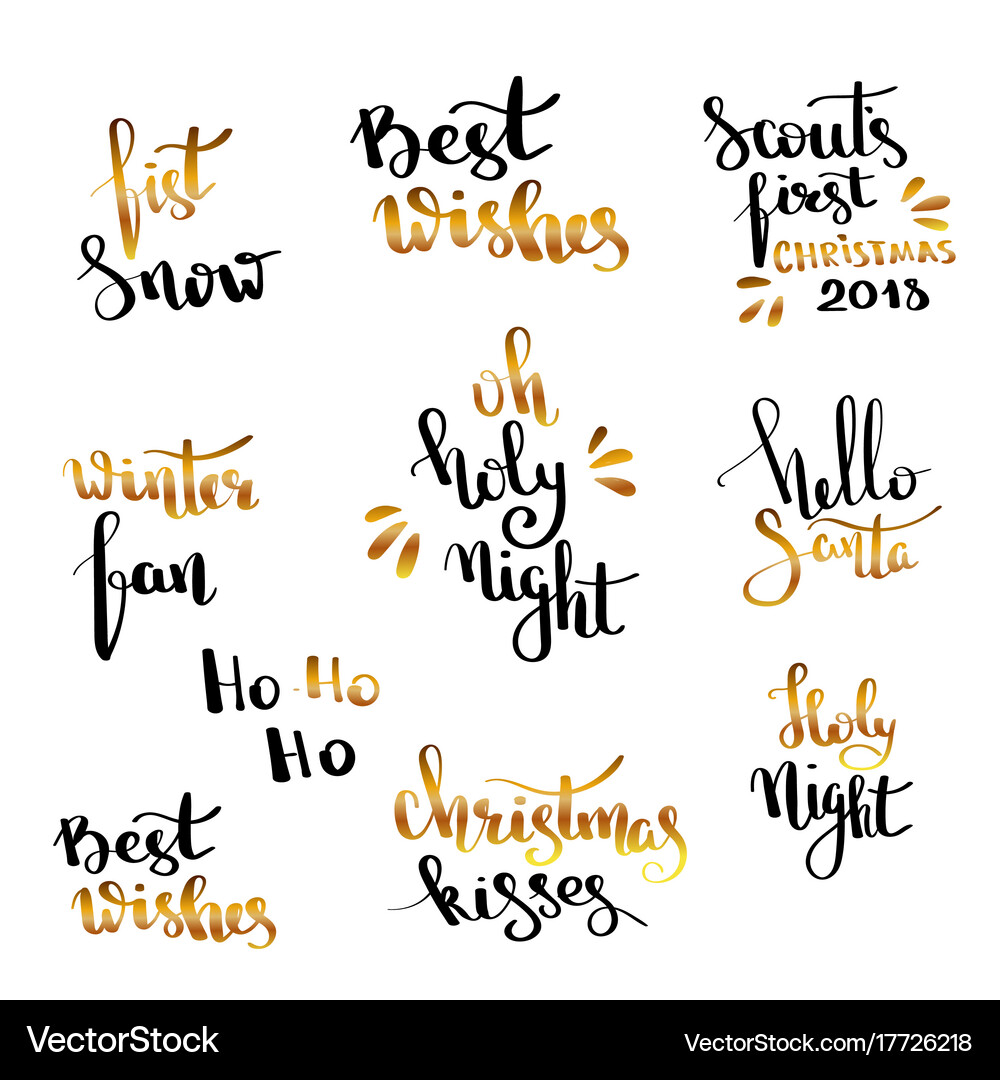 fist
Snow
Best
Wishes
Scout's
first
CHRISTMAS
2018
winter
fan
oh
holy
Night
hello
Santa
Ho-Ho
Ho
Holy
Night
Best
Wishes
christmas
kisses
VectorStock®
VectorStock.com/17726218